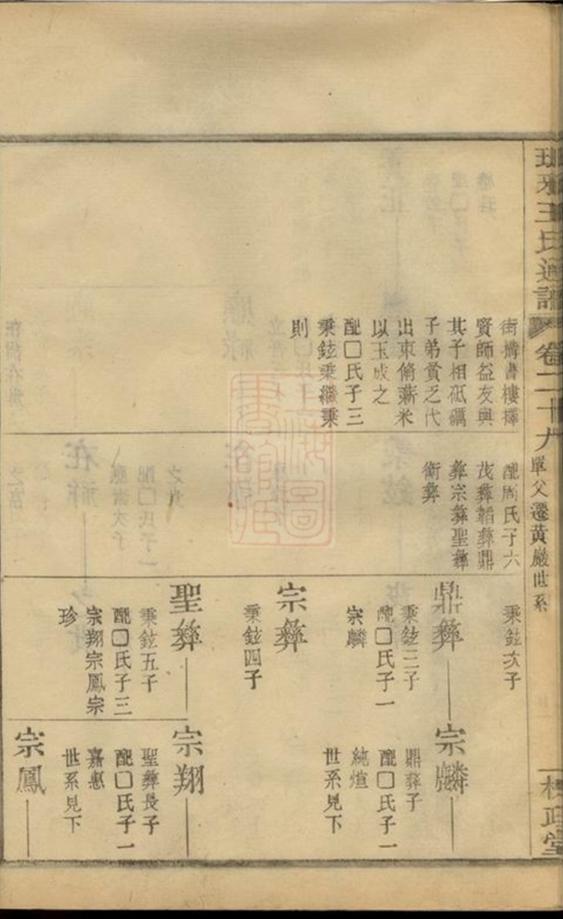 琅邪王氏通譜
卷二十九
單父遷黃巖世系
街搆書樓擇
賢師益友與
其子相砥礪
子弟貧乏代
出束脩薪米
以玉成之
配囗氏子三
秉鉉秉繼秉
則
配周氏子六
茂彝韜彝鼎
彝宗彝聖彝
衛彝
秉鉉次子
鼎彝
秉鉉三子
配囗氏子一
宗麟
宗彝
秉鉉四子
聖彝
秉鉉五子
配囗氏子三
宗翔宗鳳宗
珍
宗麟
鼎彝子
配囗氏子一
純煊
世系見下
宗翔
聖彝長子
配囗氏子一
嘉惠
世系見下
宗鳳